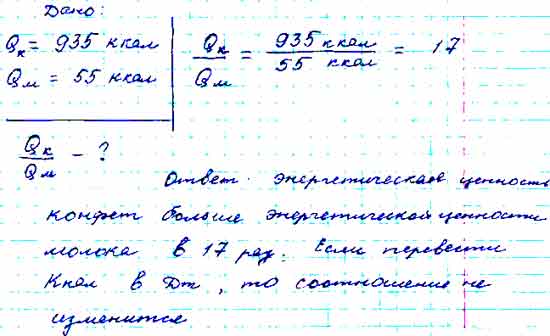 Дано:
Qк = 935 ккал
Qм = 55 ккал
Qк/Qм = 935 ккал/55 ккал = 17
Qк/Qм - ?
Ответ. энергетическая ценность
конфет больше энергетической ценности
молока в 17 раз. Если перевести
Ккал в Дж, то соотношение не
изменится